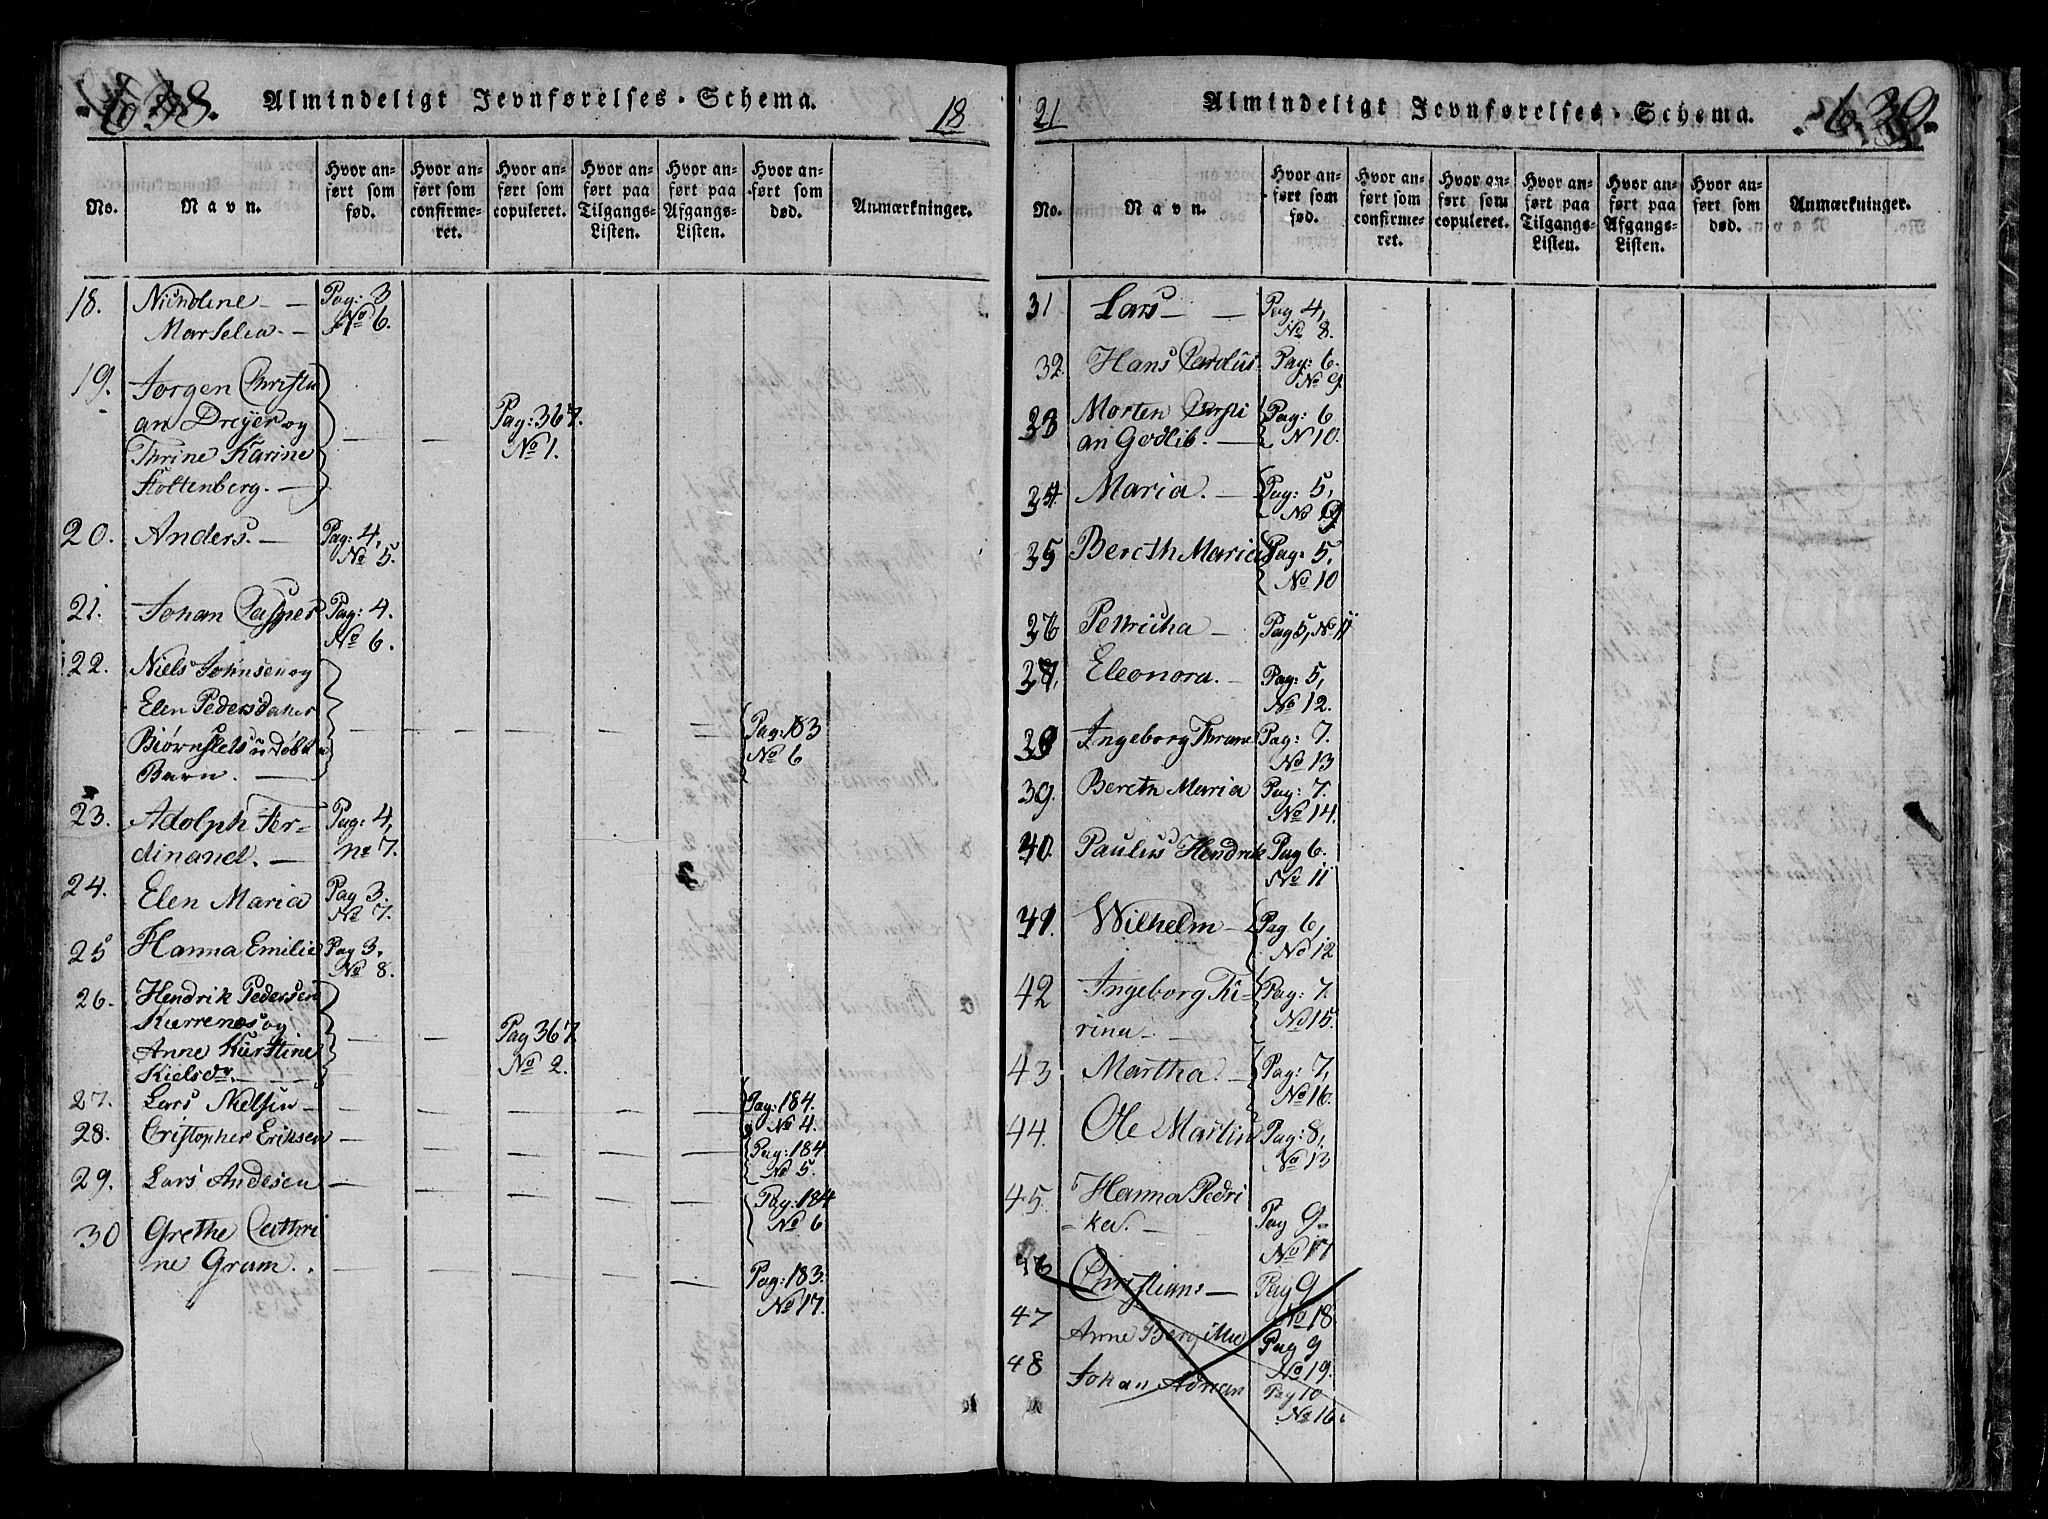 638. Almindeligt Jevnførelses-Schema. 18
No.
Navn.
Hvor anført som fød.
Hvor anført som confirmeret.
Hvor anført som copuleret.
Hvor anført paa Tilgangs-Listen.
Hvor anført paa Afgangs-Listen.
Hvor anført som død.
Anmærkninger.
18. Nicoline — Pag: 3
Marselia. — No 6.
19. Jorgen Christi
an Dreyer og Pag: 367.
Thrine Karine No 1.
Stoltenberg. —
20. Anders. — Pag: 4,
No 5.
21. Johan Casper Pag: 4.
No 6.
22. Niels Johnsen og
Elen Pedersdatter Pag: 183
Biørnslets udøbt No 6
Barn. —
23. Adolph Fer- Pag: 4,
dinand. — No 7.
24. Elen Maria Pag 3.
No 7.
25 Hanna Emilie Pag 3.
No 8.
26. Hendrik Pedersen
Kurrenæs og Pag 367.
Anne Kirstine No 2.
Kielsdr. —
27. Lars Nielsen — Pag: 184.
No 4.
28. Cristopher Eriksen — Pag: 184
No 5.
29. Lars Andesen — Pag: 184
No 6
30 Grethe Cathri
ne Gram. Pag: 183.
No 17.
21 Almindeligt Jevnførelses-Schema. 639.
No.
Navn.
Hvor anført som fød.
Hvor anført som confirmeret.
Hvor anført som copuleret.
Hvor anført paa Tilgangs-Listen.
Hvor anført paa Afgangs-Listen.
Hvor anført som død.
Anmærkninger.
31 Lars — Pag 4,
No 8.
32. Hans Carolus Pag: 6.
No 9.
33 Morten Christi Pag: 6
an Godlib. — N 10.
34 Maria. — Pag: 5,
No 9
35 Bereth Maria Pag: 5,
No 10
36 Petricha — Pag 5, No 11
37. Eleonora. — Pag: 5,
No 12.
38 Ingeborg Thrane Pag: 7.
No 13
39. Bereth Maria Pag: 7.
No 14.
40. Paulus Hendrik Pag 6.
No 11
41. Wilhelm — Pag 6,
No 12
42 Ingeborg Ka- Pag: 7.
rina — No 15.
43 Martha. — Pag: 7,
No 16.
44. Ole Martin Pag: 8,
No 13
45. Hanna Pedri
ka. — Pag 9.
No 17
46 Christians — Pag 9
No 18
47 Anne Bergitte Pag 9
No 19.
48 Johan Adrian Pag 10
No 16.